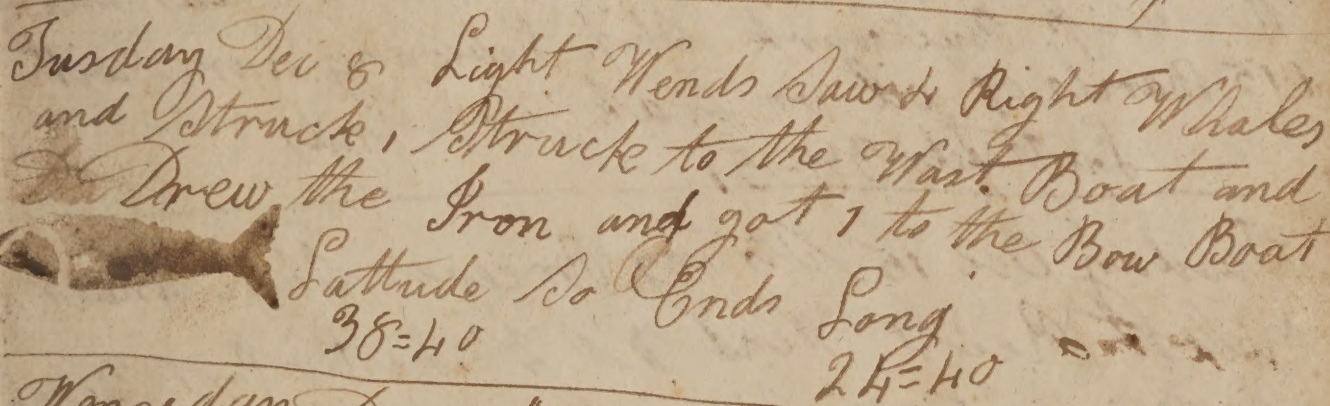 Tusday Dec 8 Light Wends Saw 2 Right Whales
and Struck, Struck to the Wast Boat and
Drew the Iron and got 1 to the Bow Boat
Lattude So Ends Long
38=40 24=40